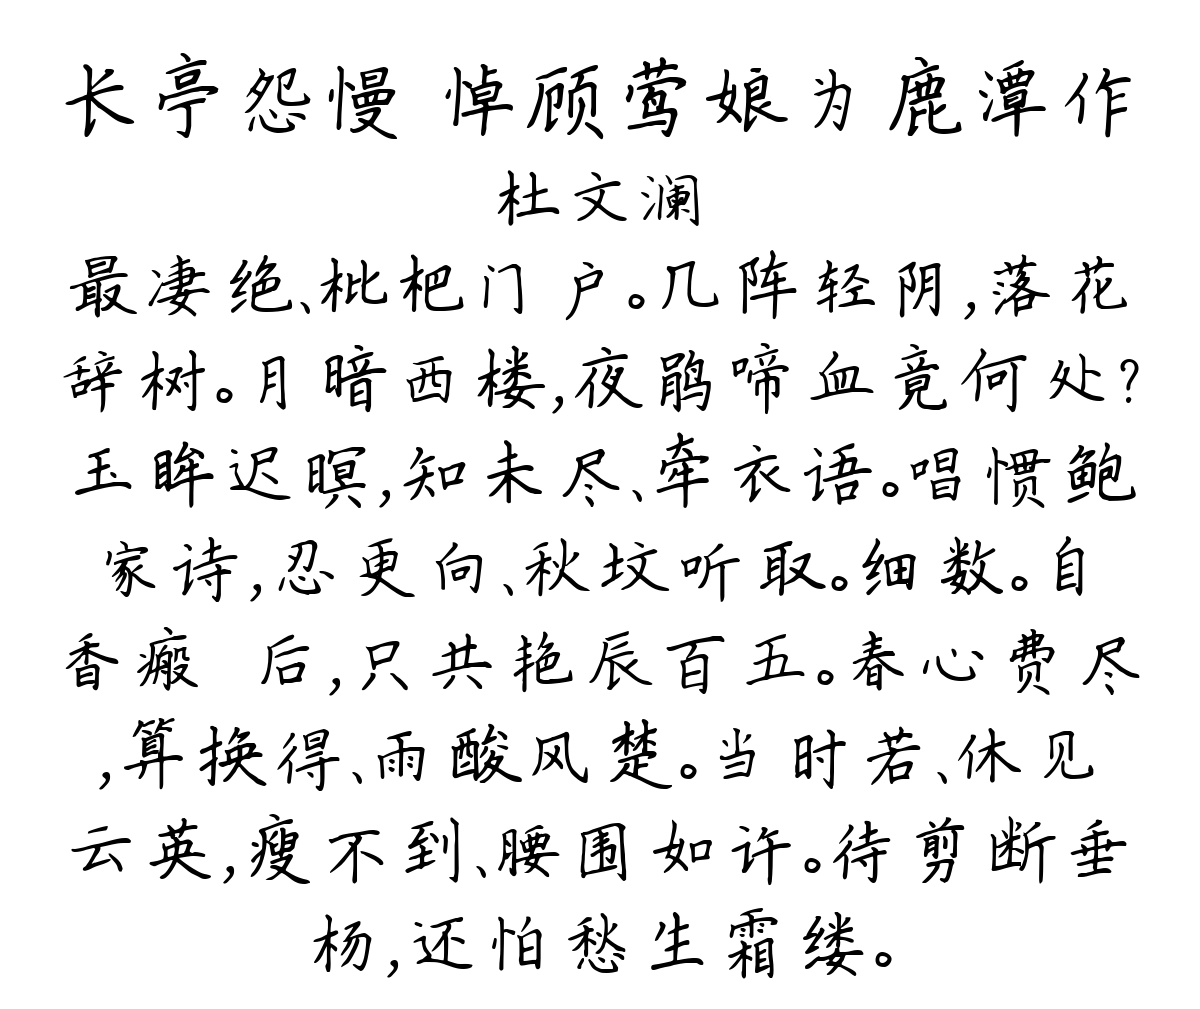 长亭怨慢 悼顾莺娘为鹿潭作
杜文澜
最凄绝、枇杷门户。几阵轻阴,落花
辞树。月暗西楼,夜鹃啼血竟何处?
玉眸迟暝,知未尽、牵衣语。唱惯鲍
家诗,忍更向、秋坟听取。细数。自
香瘢 后,只共艳辰百五。春心费尽
,算换得、雨酸风楚。当时若、休见
云英,瘦不到、腰围如许。待剪断垂
杨,还怕愁生霜缕。